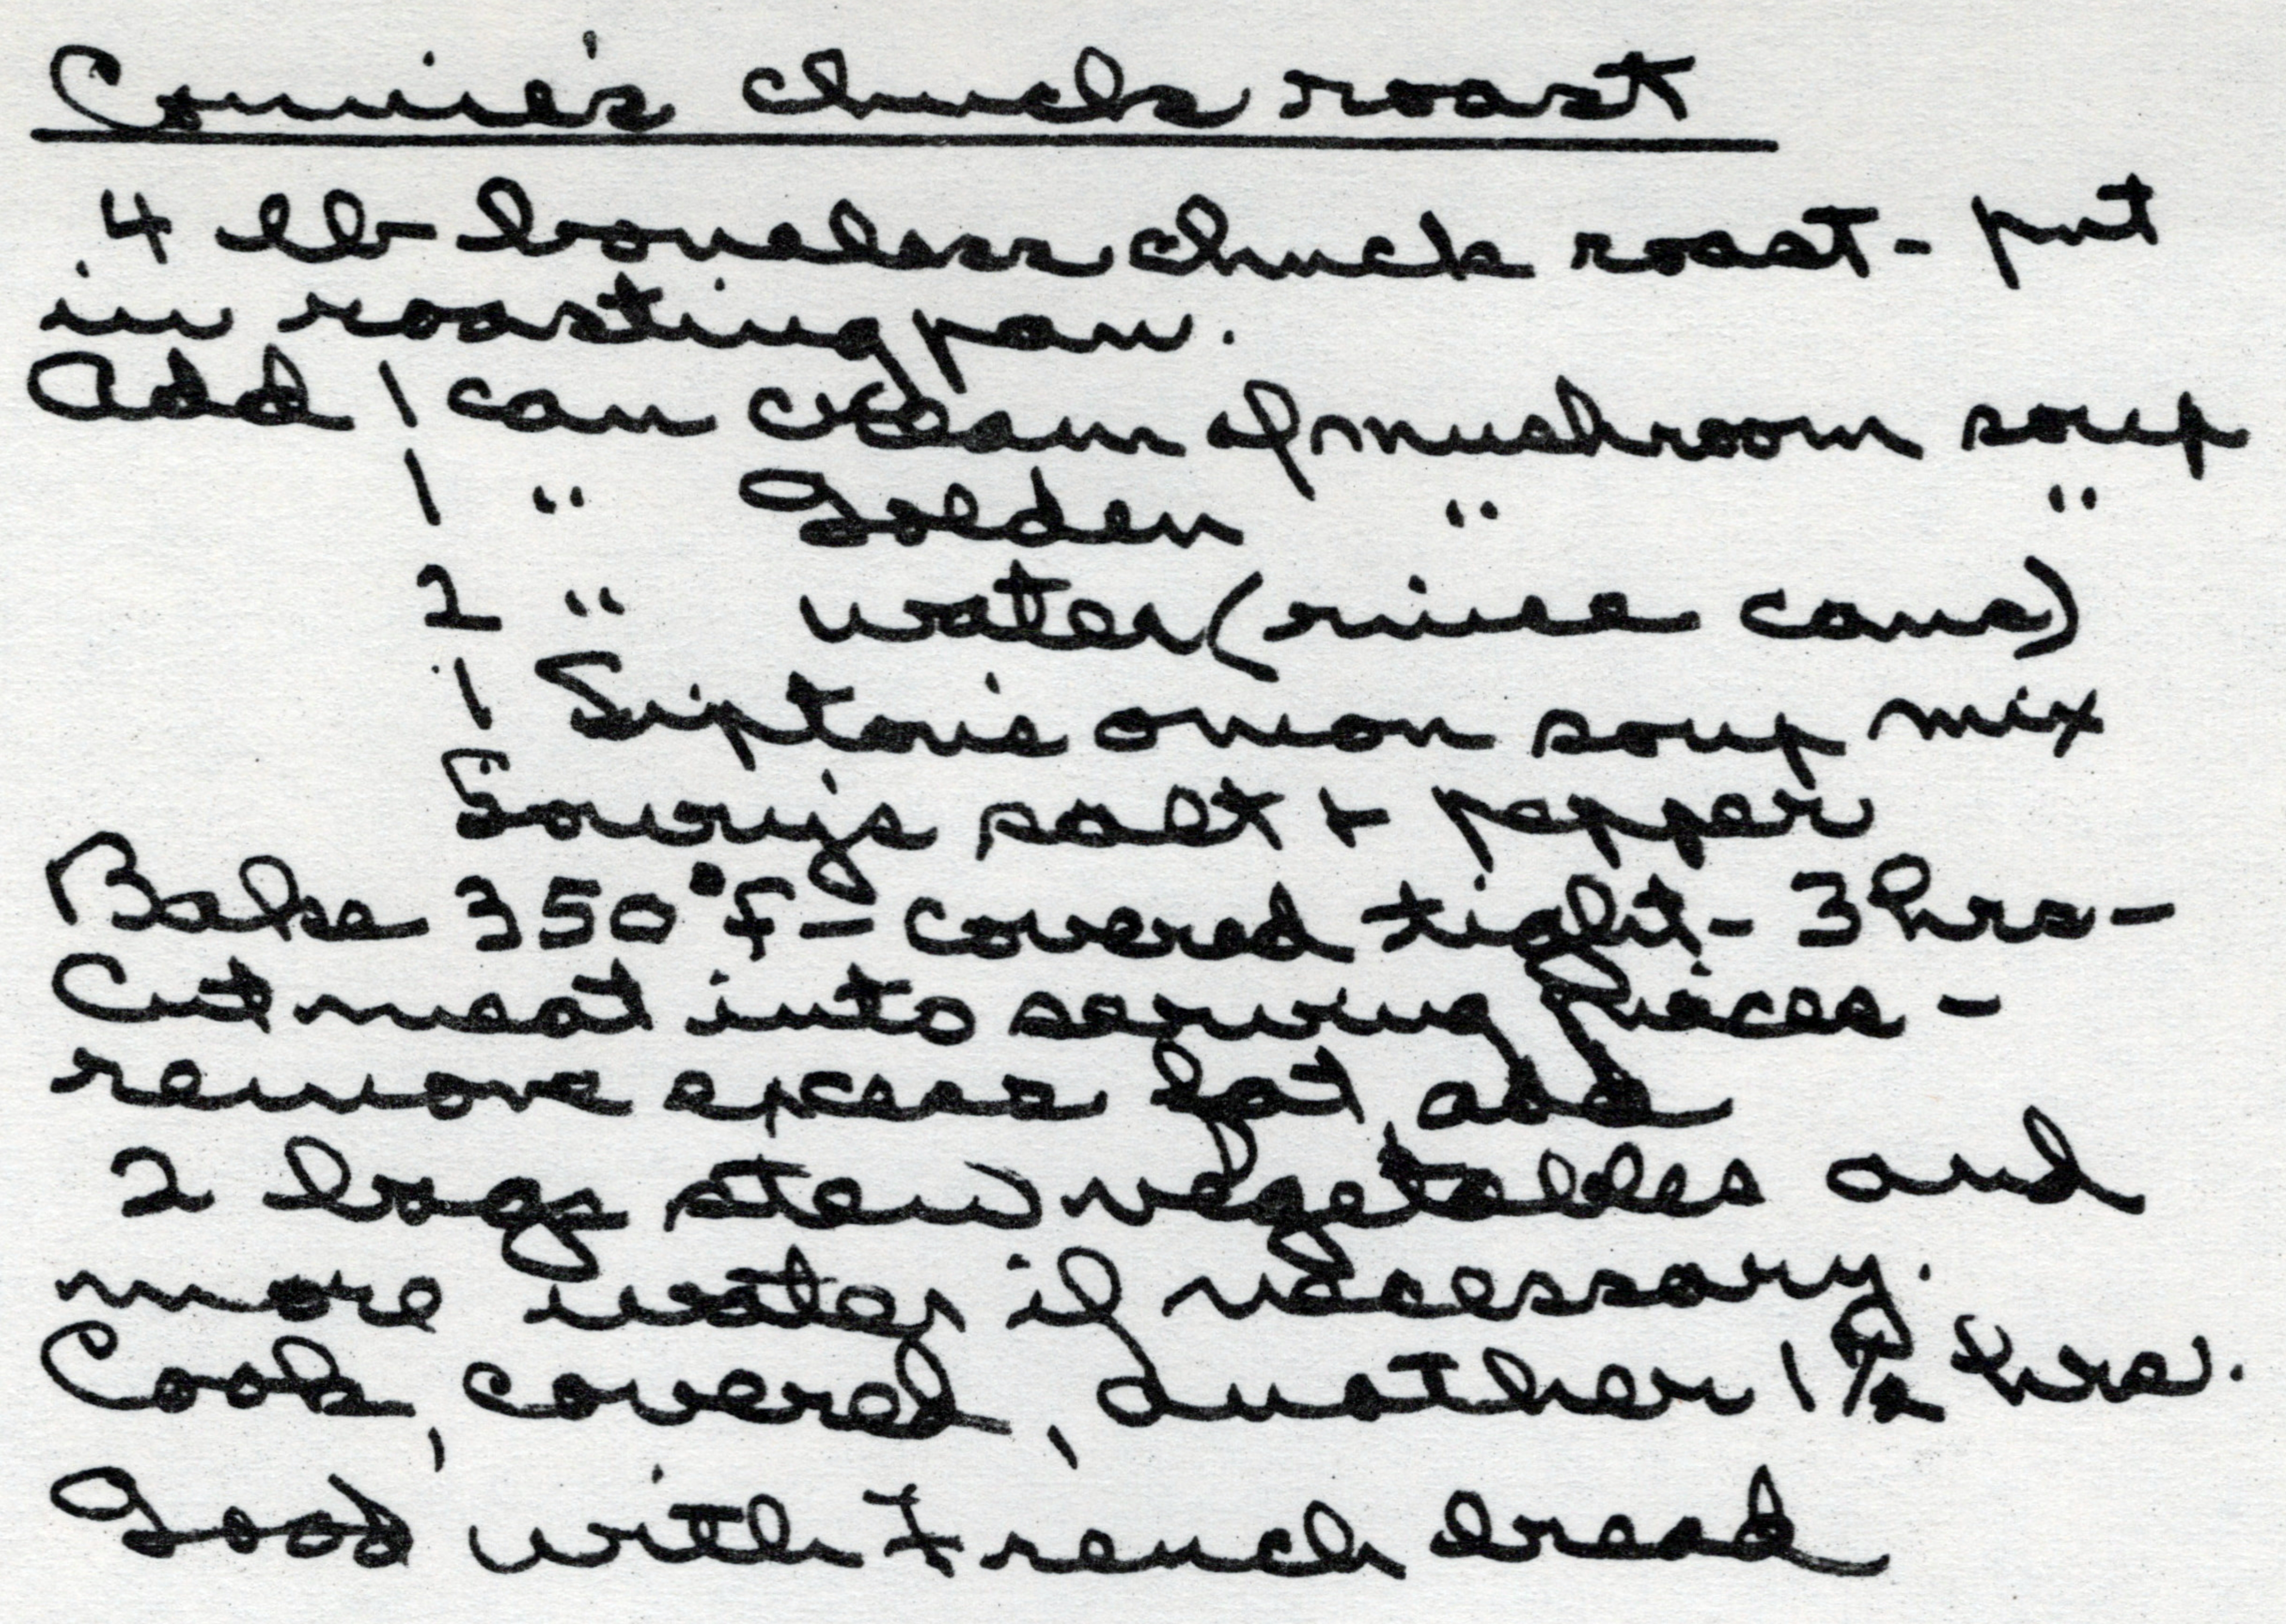 Connie's chuck roast
4 lb boneless chuck roast - put
in roasting pan.
Add 1 can cream of mushroom soup
1 " Golden " "
2 " water (rinse cans)
1 Lipton's onion soup mix
Lowry's salt + pepper
Bake 350°F - covered tight - 3 hrs -
Cut meat into serving pieces -
remove excess fat, add
2 bags stew vegetables and
more water if necessary.
Cook, covered, another 1 1/2 hrs.
Good with French bread